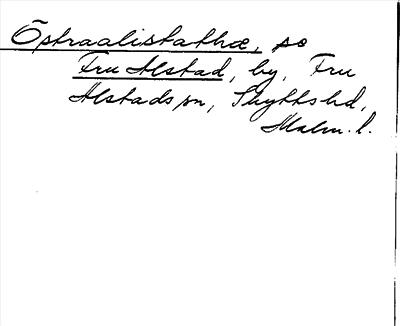 Öptraalistathæ, se
Fru Alstad, by, Fru
Alstads sn, Skytts hd,
Malm. l.